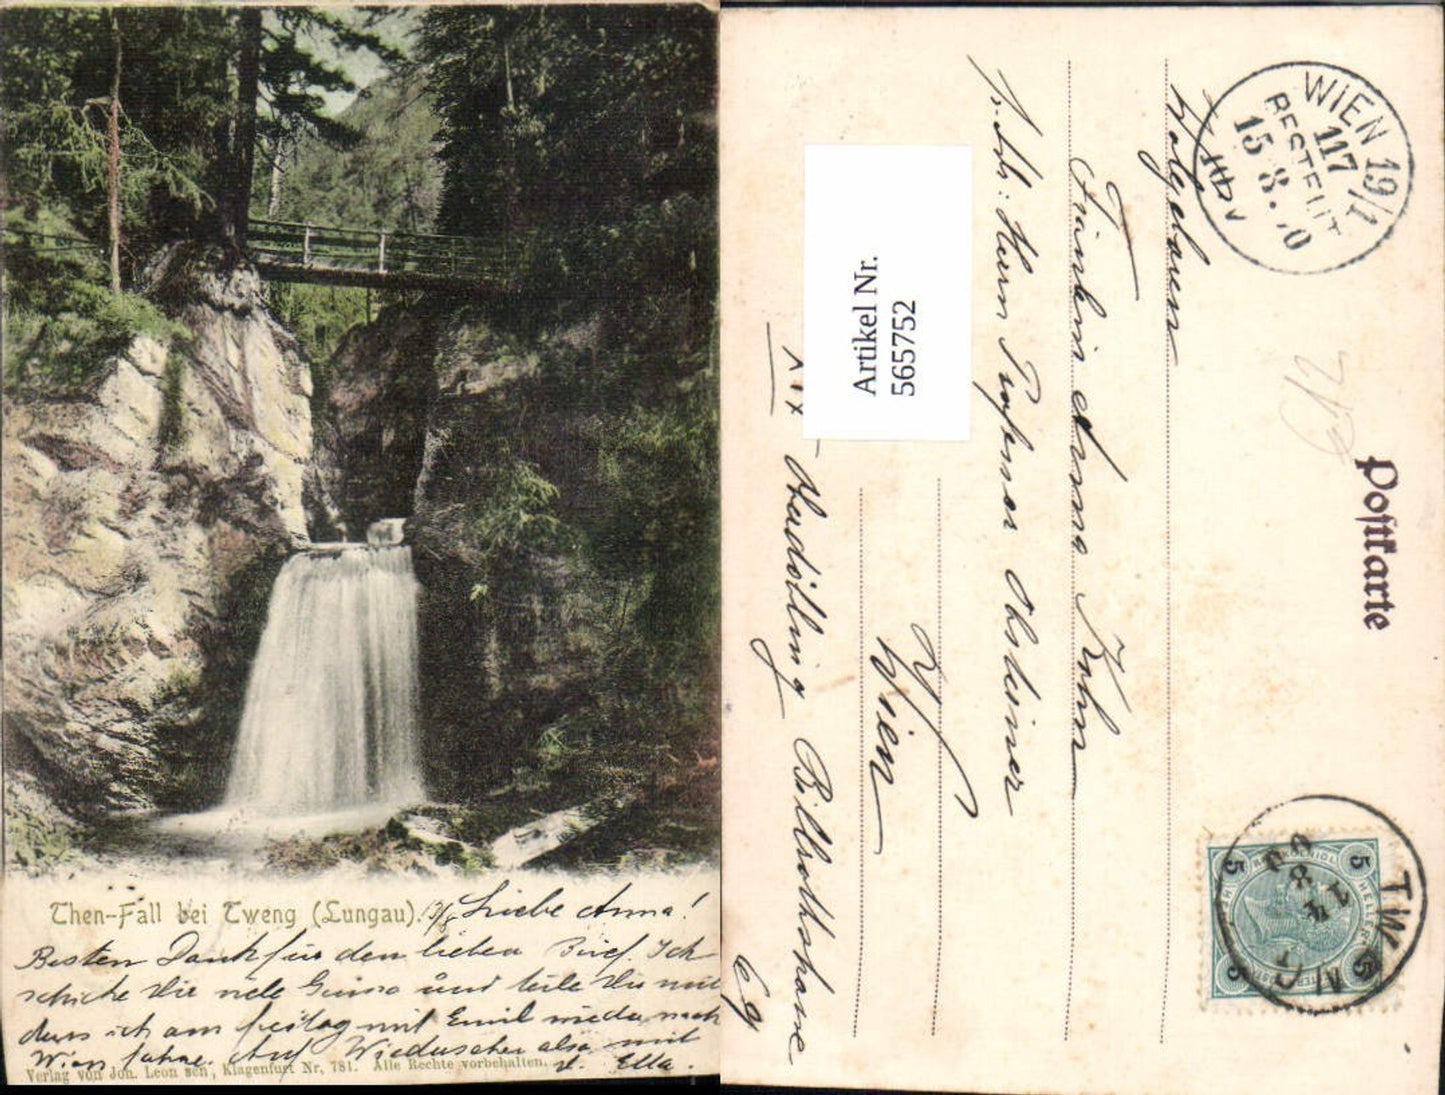 Then-Fall bei Tweng (Lungau).
13/8 Liebe Anna!
Besten Dank für den lieben Brief. Ich
schicke Dir viele Grüsse und teile Dir mit
dass ich am freitag mit Emil wieder nach
Wien fahre. Auf Wiedersehen also mit
Ella.
Verlag von Joh. Leon sen., Klagenfurt Nr. 781. Alle Rechte vorbehalten.
Postkarte
WIEN 19/1
117
BESTELLT
15 8. 0
Wohlgeboren
Fräulein Anna Kohn
Herrn Professor
Wien
XIX
Unterdöbling Billrothstrasse
69
Artikel Nr.
565752
TWENG
14 8 00
5 5 5 5
HELLER